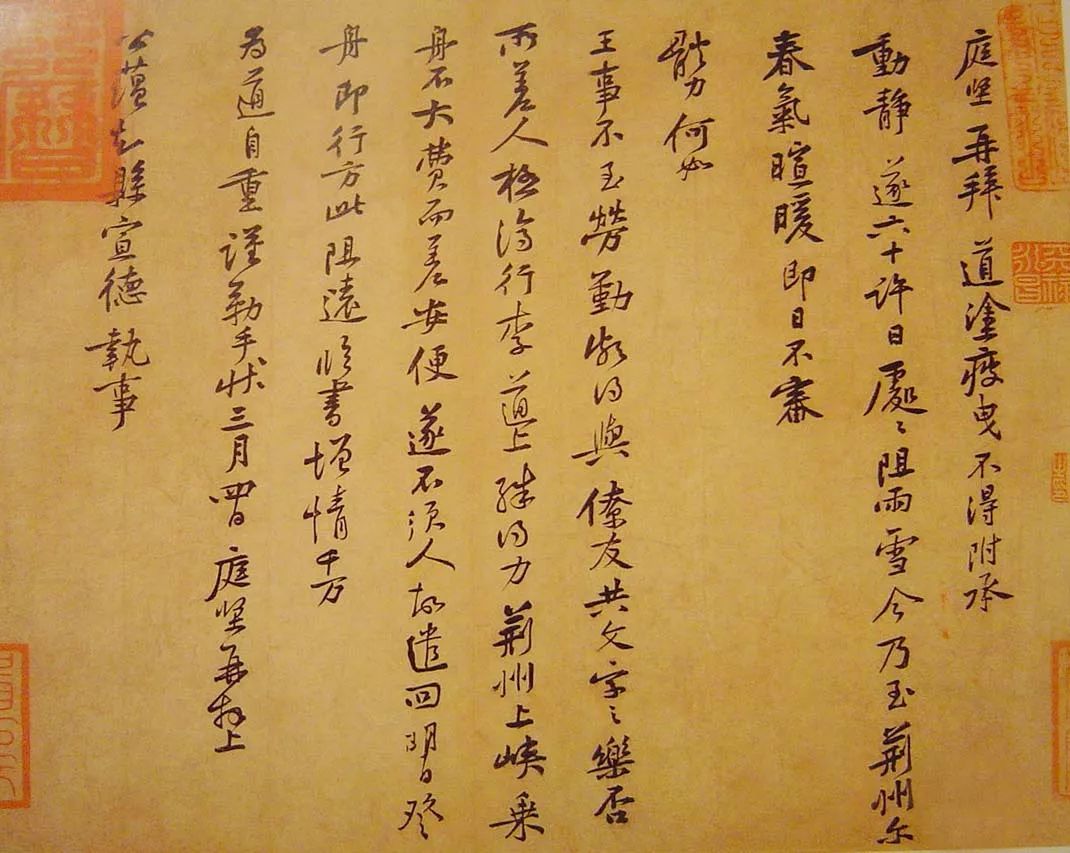 庭堅再拜道塗疲曳不得附承
動靜遂六十許日處〻阻雨雪今乃至荊州尔
春氣暄暖即日不審
體力何如
王事不至勞勤頗得與僚友共文字之樂否
所差人極濟行李道上殊得力荊州上峽乘
舟不大費而差安便遂不須人故遣回明日發
舟即行方此阻遠臨書增情千万
為道自重謹勒手狀三月四日庭堅再拜上
公蘊知縣宣德執事